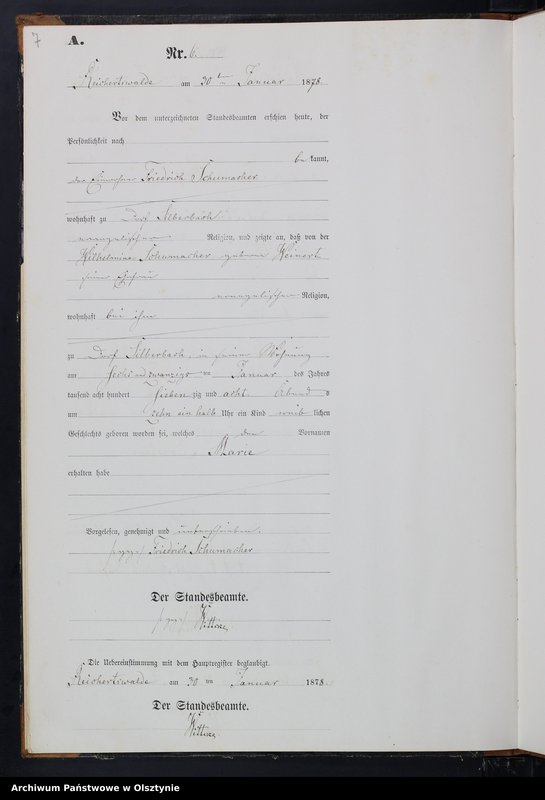 7
A.
Nr. 6.
Reichertswalde am 30ten Januar 1878.
Vor dem unterzeichneten Standesbeamten erschien heute, der
Persönlichkeit nach
be kannt,
der Einwohner Friedrich Schumacher
wohnhaft zu Dorf Silberbach
evangelischer Religion, und zeigte an, daß von der
Wilhelmine Schumacher geborne Weinert
seiner Ehefrau
evangelischer Religion,
wohnhaft bei ihm
zu Dorf Silberbach, in seiner Wohnung
am sechsundzwanzigsten Januar des Jahres
tausend acht hundert sieben zig und acht Abend s
um zehn ein halb Uhr ein Kind weib lichen
Geschlechts geboren worden sei, welches den Vornamen
Marie
erhalten habe
Vorgelesen, genehmigt und unterschrieben.
Friedrich Schumacher
Der Standesbeamte.
Die Uebereinstimmung mit dem Hauptregister beglaubigt.
Reichertswalde am 30 ten Januar 1878
Der Standesbeamte.
Archiwum Państwowe w Olsztynie